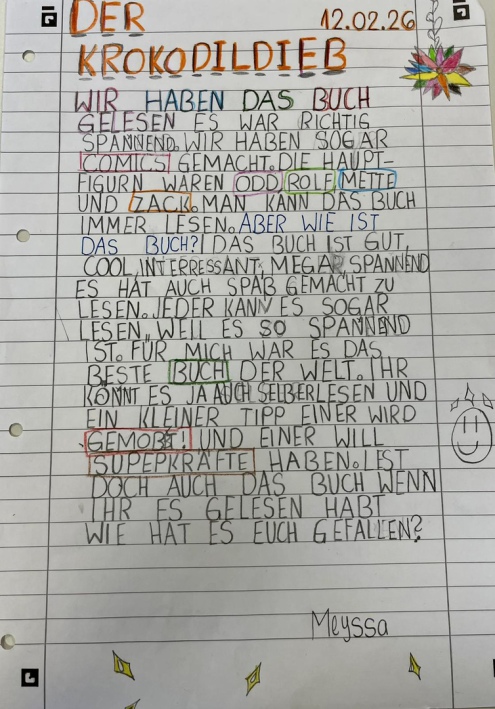 DER 12.02.26
KROKODILDIEB
WIR HABEN DAS BUCH
GELESEN ES WAR RICHTIG
SPANNEND. WIR HABEN SOGAR
COMICS GEMACHT. DIE HAUPT-
FIGURN WAREN ODD ROLF METTE
UND ZACK. MAN KANN DAS BUCH
IMMER LESEN. ABER WIE IST
DAS BUCH? DAS BUCH IST GUT,
COOL, INTERRESSANT, MEGA SPANNEND
ES HAT AUCH SPAß GEMACHT ZU
LESEN. JEDER KANN ES SOGAR
LESEN, WEIL ES SO SPANNEND
IST. FÜR MICH WAR ES DAS
BESTE BUCH DER WELT. IHR
KÖNNT ES JA AUCH SELBER LESEN UND
EIN KLEINER TIPP EINER WIRD
GEMOBT! UND EINER WILL
SUPEPKRÄFTE HABEN. LEST
DOCH AUCH DAS BUCH WENN
IHR ES GELESEN HABT
WIE HAT ES EUCH GEFALLEN?
Meyssa